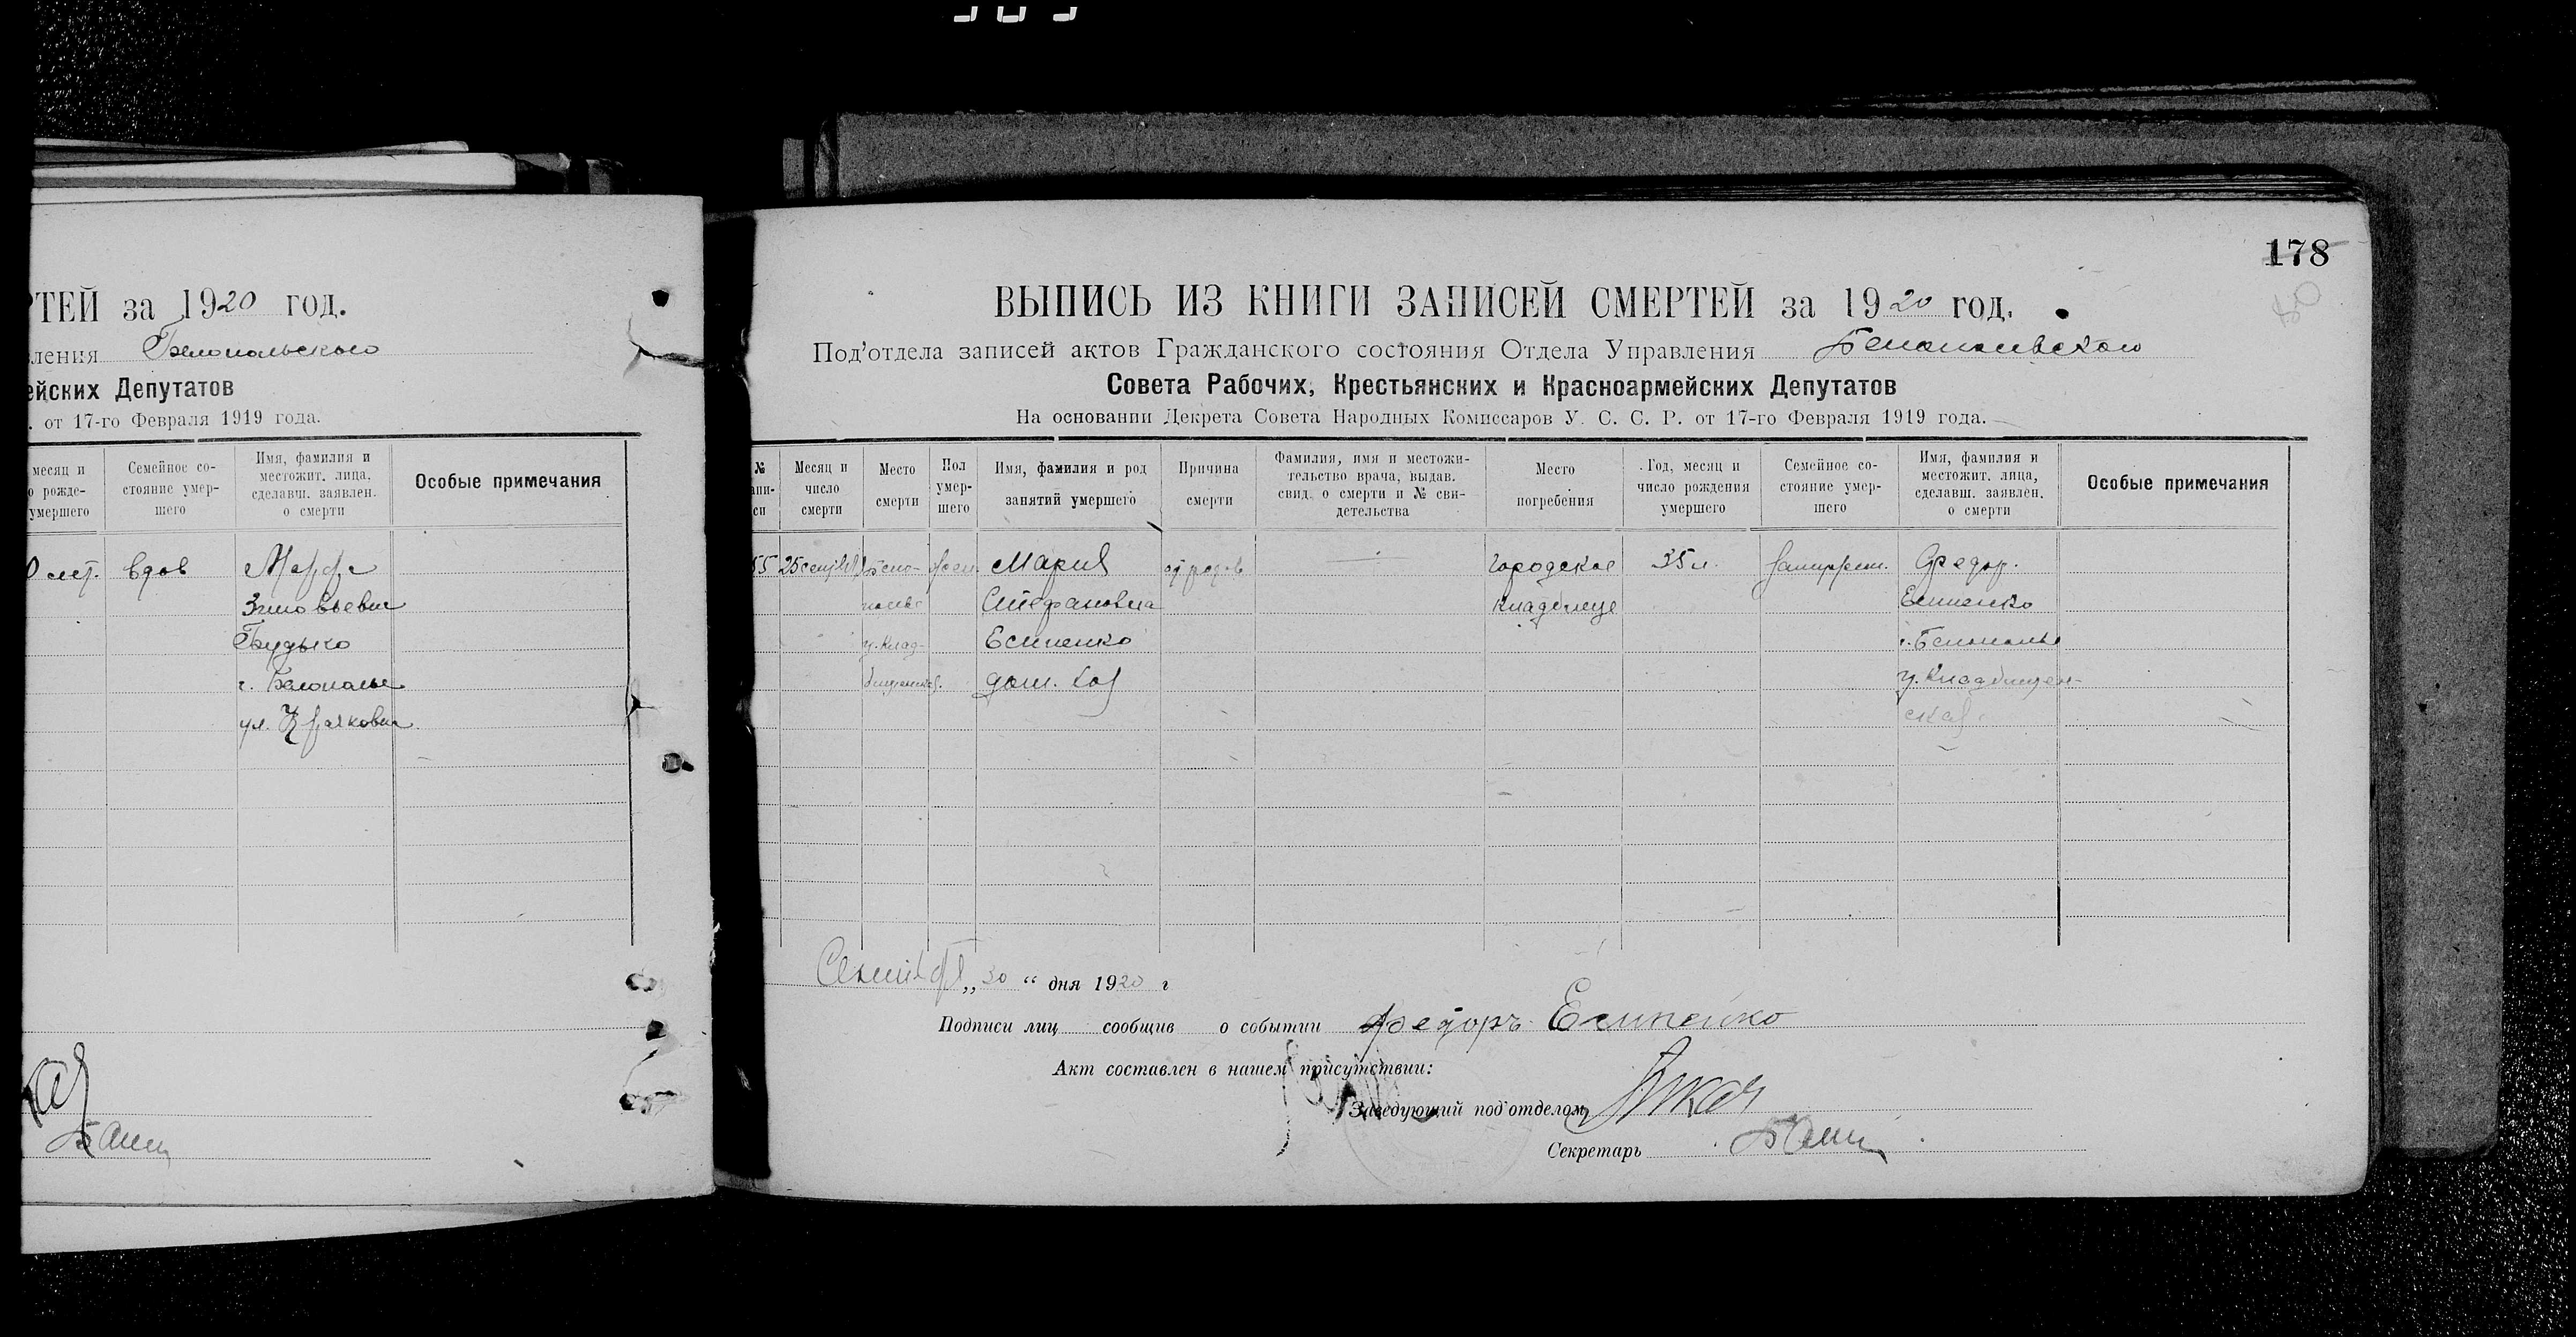 РТЕЙ за 1920 год.
вления Белопольского
ейских Депутатов
. от 17-го Февраля 1919 года.
месяц и
о рожде-
умершего
Семейное со-
стояние умер-
шего
Имя, фамилия и
местожит. лица,
сделавш. заявлен.
о смерти
Особые примечания
0 лет. вдов Марфа
Зиновьевна
Будыко
г. Белополье
ул.
178
ВЫПИСЬ ИЗ КНИГИ ЗАПИСЕЙ СМЕРТЕЙ за 1920 год.
Под'отдела записей актов Гражданского состояния Отдела Управления Белопольского
Совета Рабочих, Крестьянских и Красноармейских Депутатов
На основании Декрета Совета Народных Комиссаров У. С. С. Р. от 17-го Февраля 1919 года.
№
апи-
си
Месяц и
число
смерти
Место
смерти
Пол
умер-
шего
Имя, фамилия и род
занятий умершего
Причина
смерти
Фамилия, имя и местожи-
тельство врача, выдав.
свид. о смерти и № сви-
детельства
Место
погребения
Год, месяц и
число рождения
умершего
Семейное со-
стояние умер-
шего
Имя, фамилия и
местожит. лица,
сделавш. заявлен.
о смерти
Особые примечания
55 25 сентября Бело- жен Мария от родов — Городское 35 л. замужем. Федор.
полье Стефановна кладбище Есипенко
у. Клад- Есипенко г. Белополье
бищенская. дом. хоз у. Кладбищен-
ская
Сентября „ 30 “ дня 1920 г
Подписи лиц сообщив о событии Федоръ Есипенко
Акт составлен в нашем присутствии:
Заведующий под'отделом
Секретарь